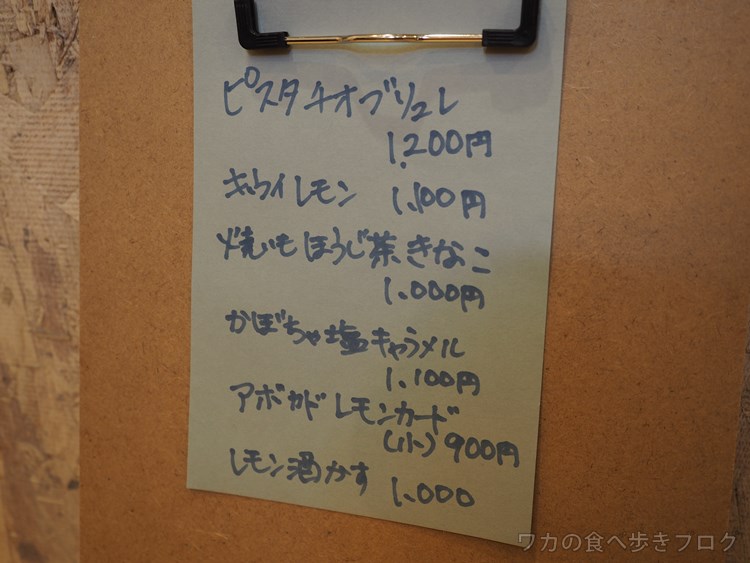 ピスタチオブリュレ
1,200円
キウイレモン 1,100円
焼いもほうじ茶きなこ
1,000円
かぼちゃ塩キャラメル
1,100円
アボカドレモンカード
(小) 900円
レモン酒かす 1,000
ワカの食べ歩きブログ